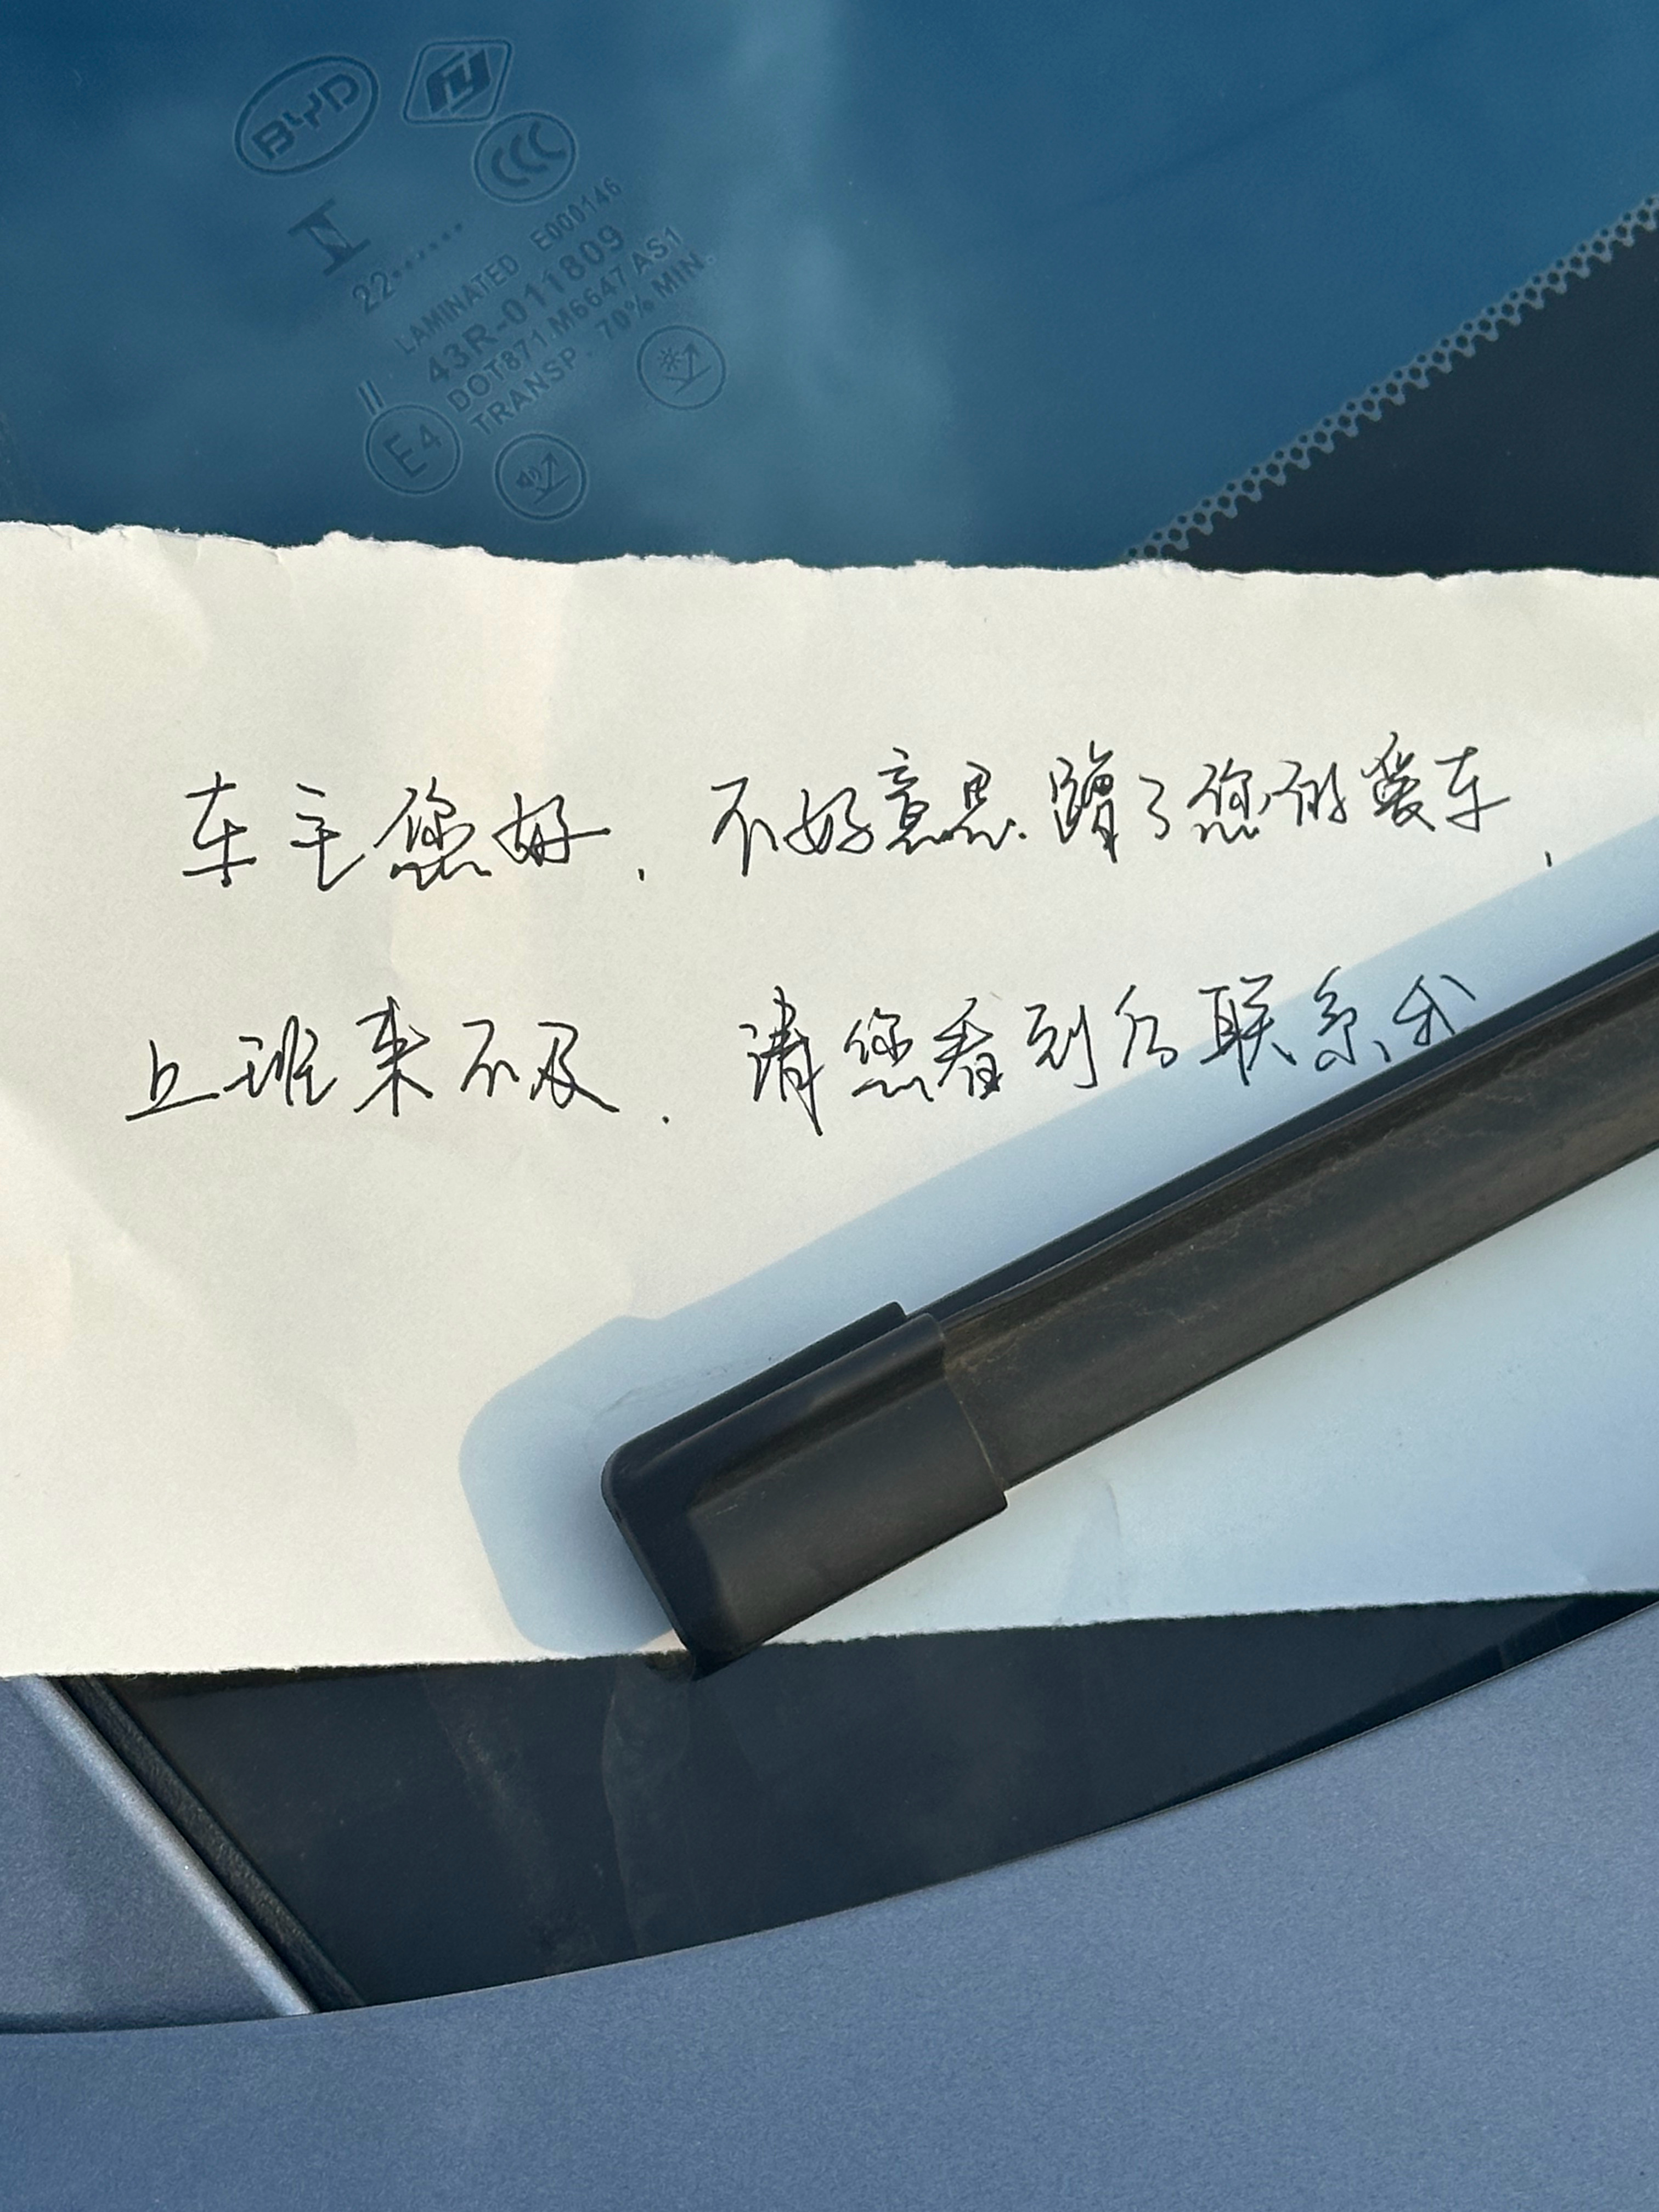 BYD
CCC
22······
LAMINATED E000146
43R-011809
DOT871.M6647 AS1
TRANSP. 70% MIN.
II
E4
车主您好，不好意思.蹭了您的爱车，
上班来不及．请您看到后联系我